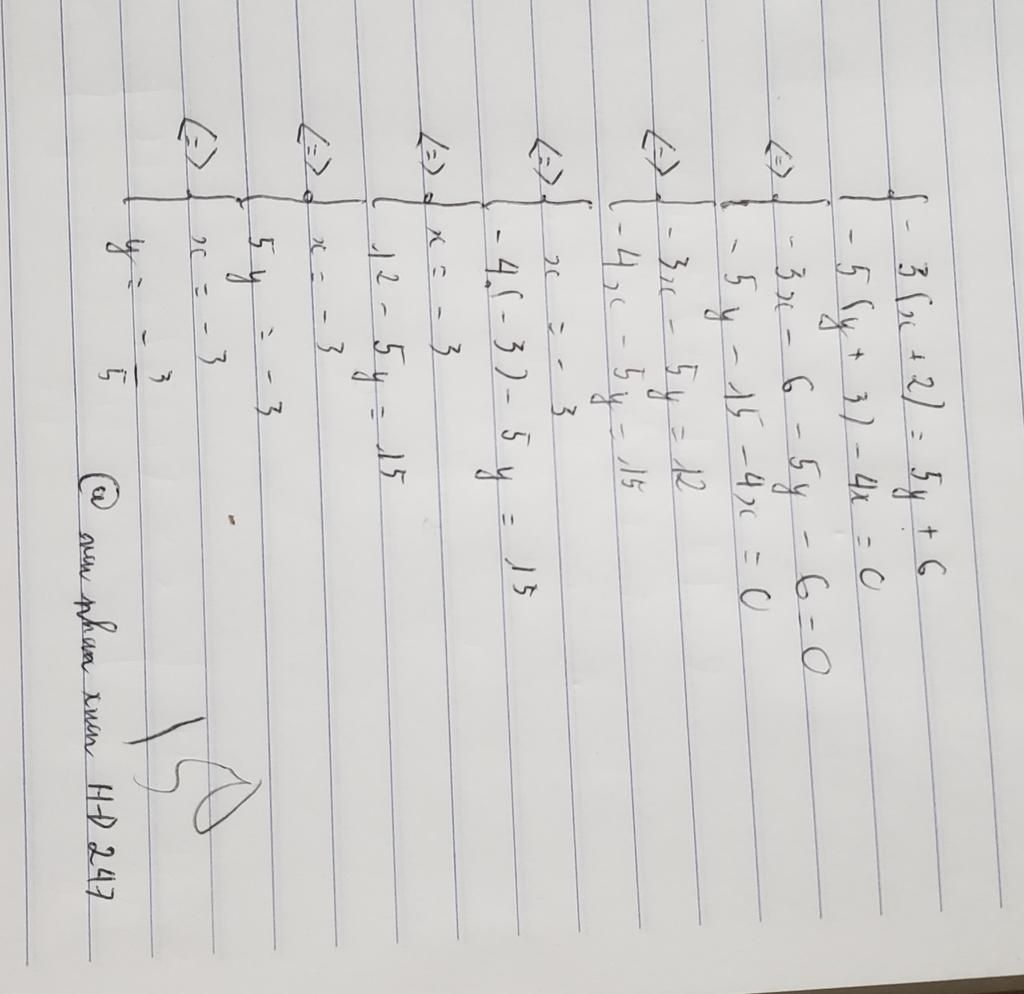 - 3(x + 2) = 5y + 6
- 5(y + 3) - 4x = 0
<=> - 3x - 6 - 5y - 6 = 0
- 5y - 15 - 4x = 0
<=> - 3x - 5y = 12
- 4x - 5y = 15
<=> x = - 3
- 4.(- 3) - 5y = 15
<=> x = - 3
12 - 5y = 15
<=> x = - 3
5y = - 3
<=> x = - 3
y = - 3/5
@ HD 247